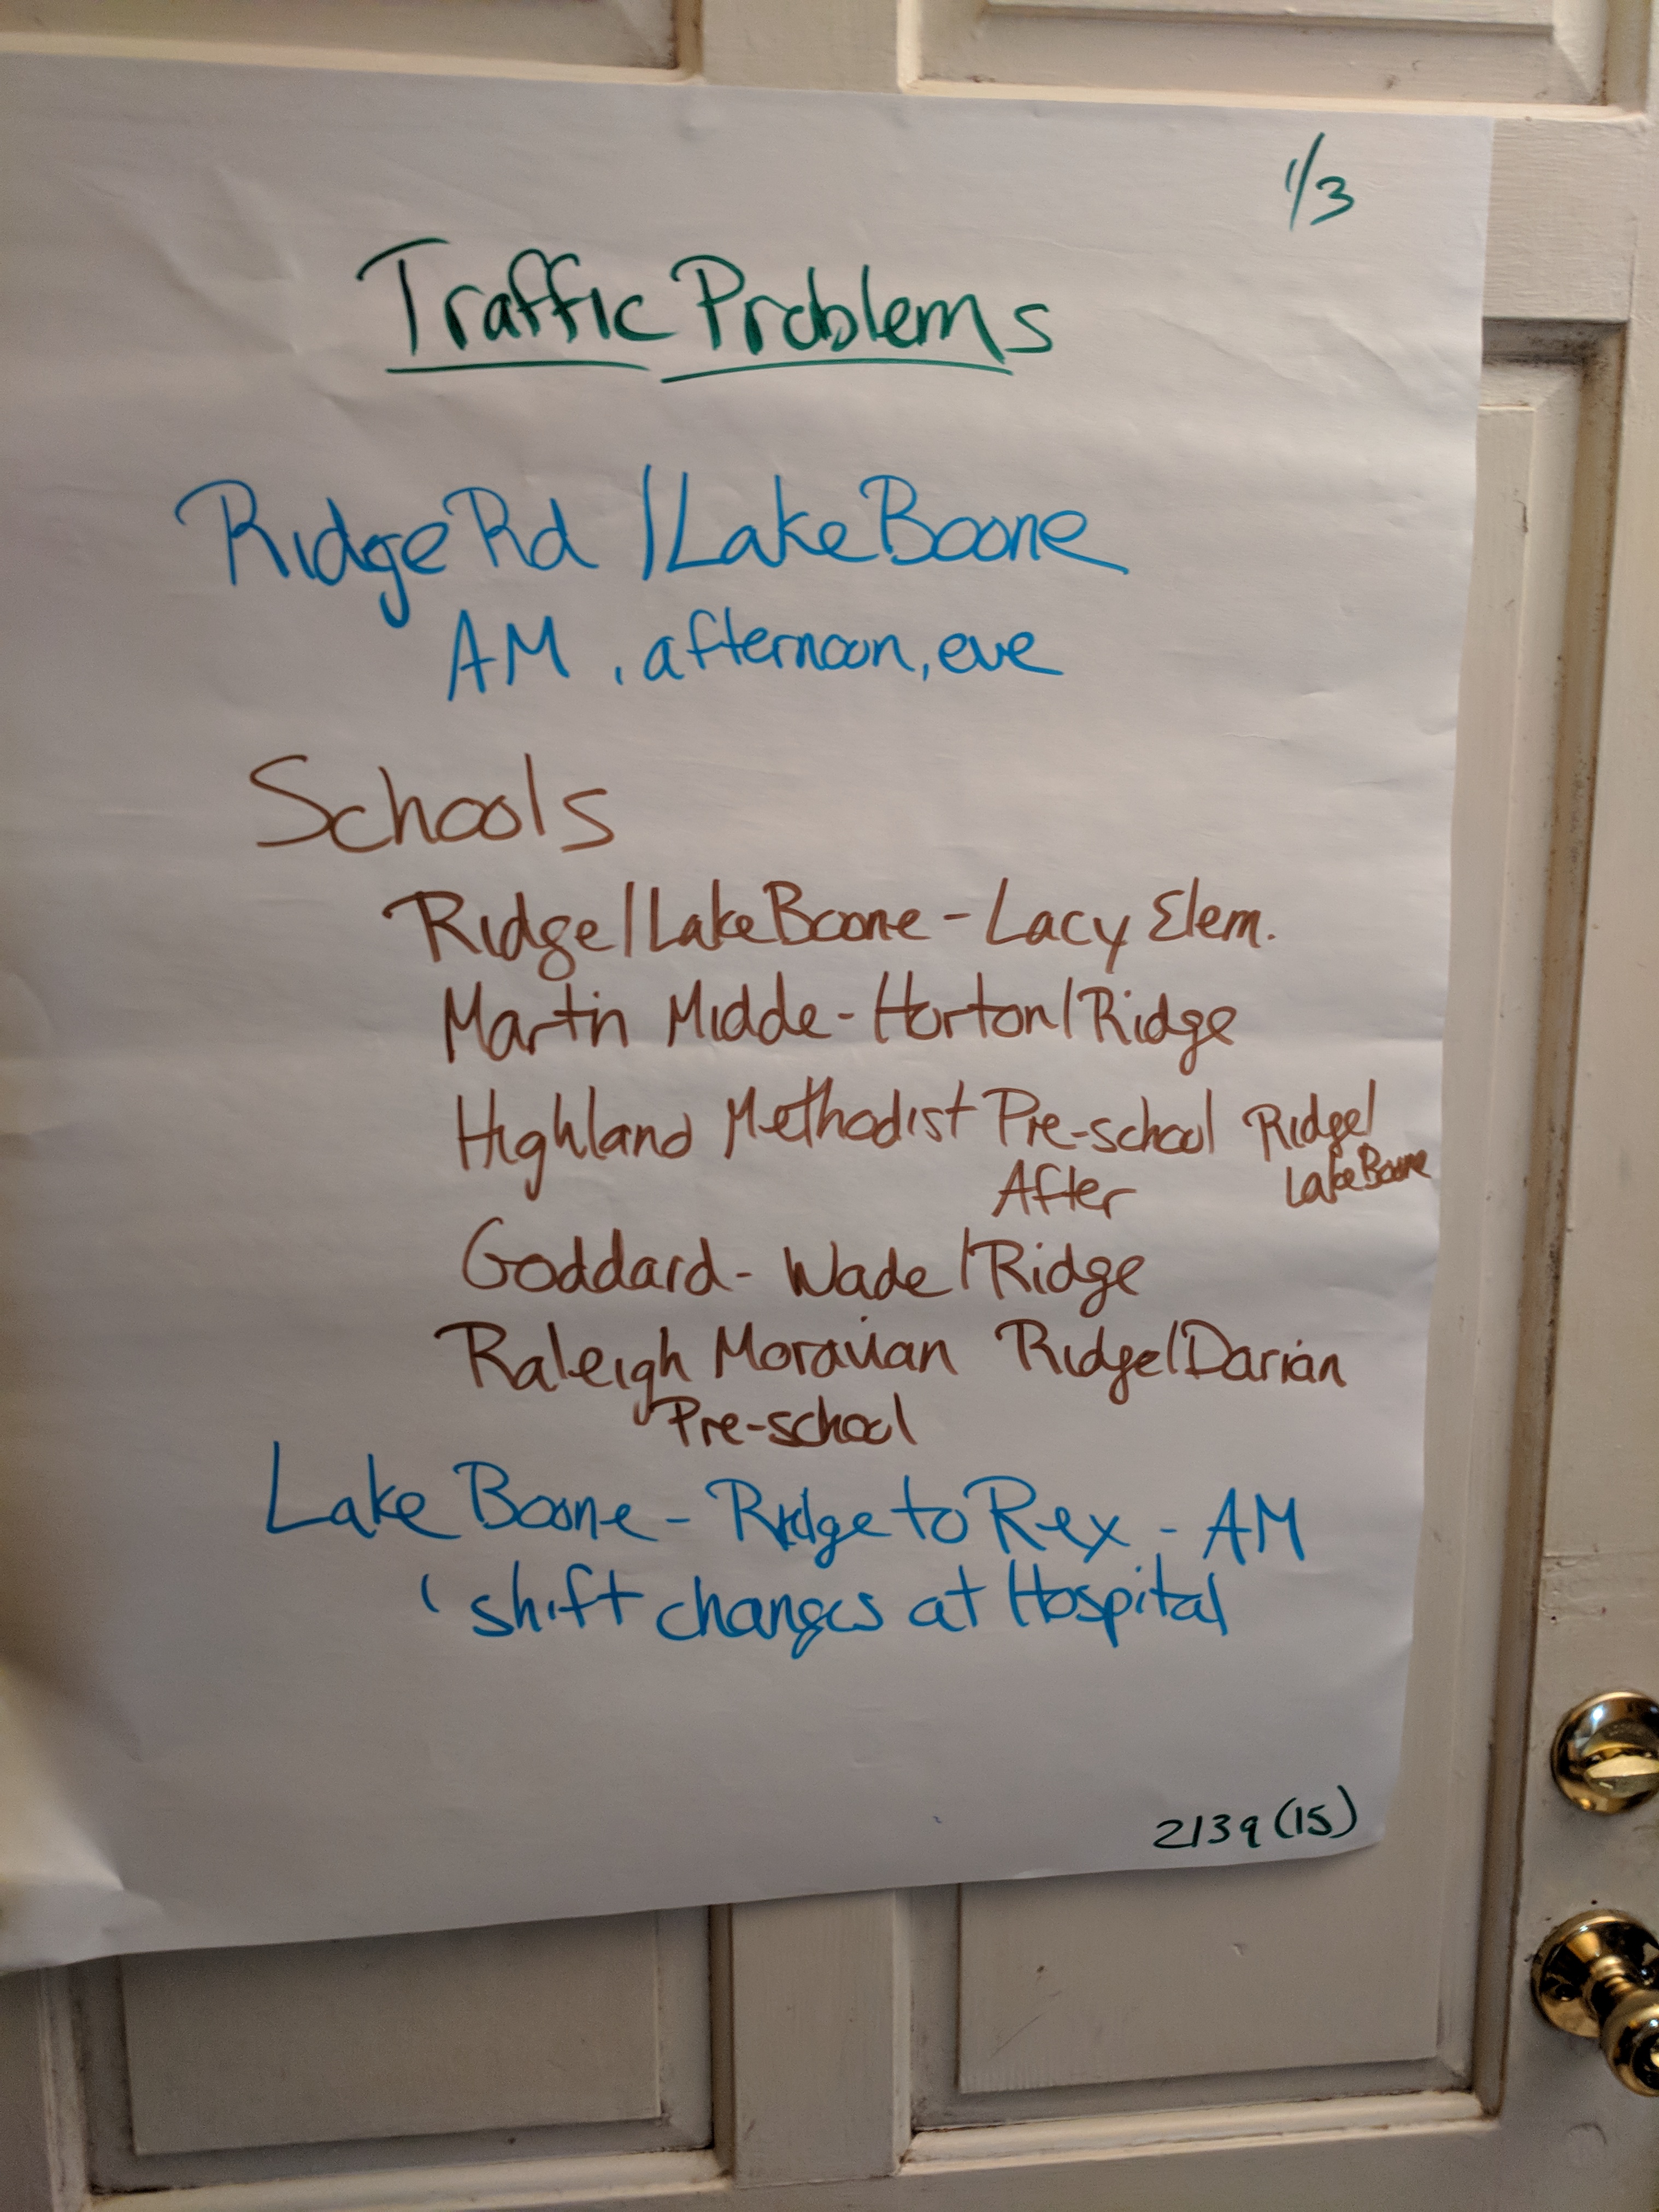 1/3
Traffic Problems
Ridge Rd / Lake Boone
AM, afternoon, eve
Schools
Ridge/Lake Boone - Lacy Elem.
Martin Midde - Horton/Ridge
Highland Methodist Pre-school Ridge/
After Lake Boone
Goddard - Wade/Ridge
Raleigh Moravian Ridge/Darian
Pre-school
Lake Boone - Ridge to Rex - AM
shift changes at Hospital
2139 (15)